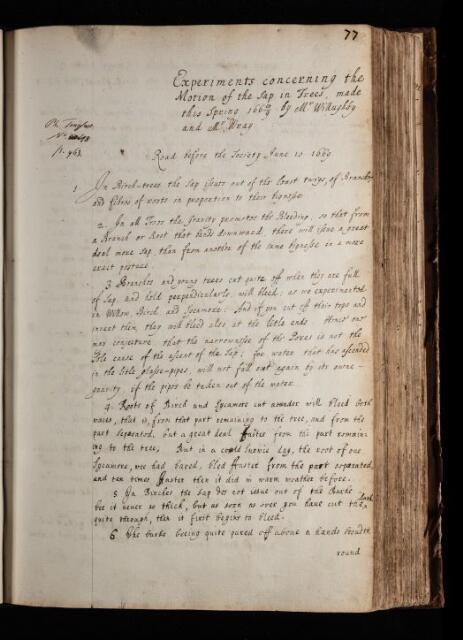 77
Experiments concerning the
Motion of the Sap in Trees, made
this Spring 166 8/9 by Mr Willughby
and Mr Wray
Ph. Transact.
No 48
p. 963
Read before the Society June 10 1669.
1 In Birch-trees the Sap issues out of the least twigs, of Branches
and fibres of roots in proportion to their bignesse
2. In all Trees the Gravity promotes the Bleeding, so that from
a Branch or Root that tends downward there will issue a great
deal more Sap, than from another of the same bignesse in a more
erect posture.
3 Branches and young trees cut quite off when they are full
of Sap, and held perpendicularly, will bleed, as we experimented
in Willow, Birch, and Sycamore: And if you cut off their tops and
invert them, they will bleed also at the little ends. Hence one
may conjecture, that the narrownesse of the Pores is not the
sole cause of the ascent of the Sap; for water that has ascended
in the little glasse-pipes, will not fall out again by its owne
gravity if the pipes be taken out of the water.
4. Roots of Birch and Sycamore cut asunder will bleed both
waies, that is, from that part remaining to the tree, and from the
part separated, but a great deal faster from the part remain-
ing to the tree, But in a cold snowie day, the root of one
Sycamore, wee had bared, bled faster from the part separated,
and ten times faster then it did in warm weather before.
5 In Birches the Sap does not issue out of the Barke
bee it never so thick, but as soon as ever you have cut the Bark
quite through, then it first begins to bleed.
6 The barke beeing quite pared off about a hands breadth
round